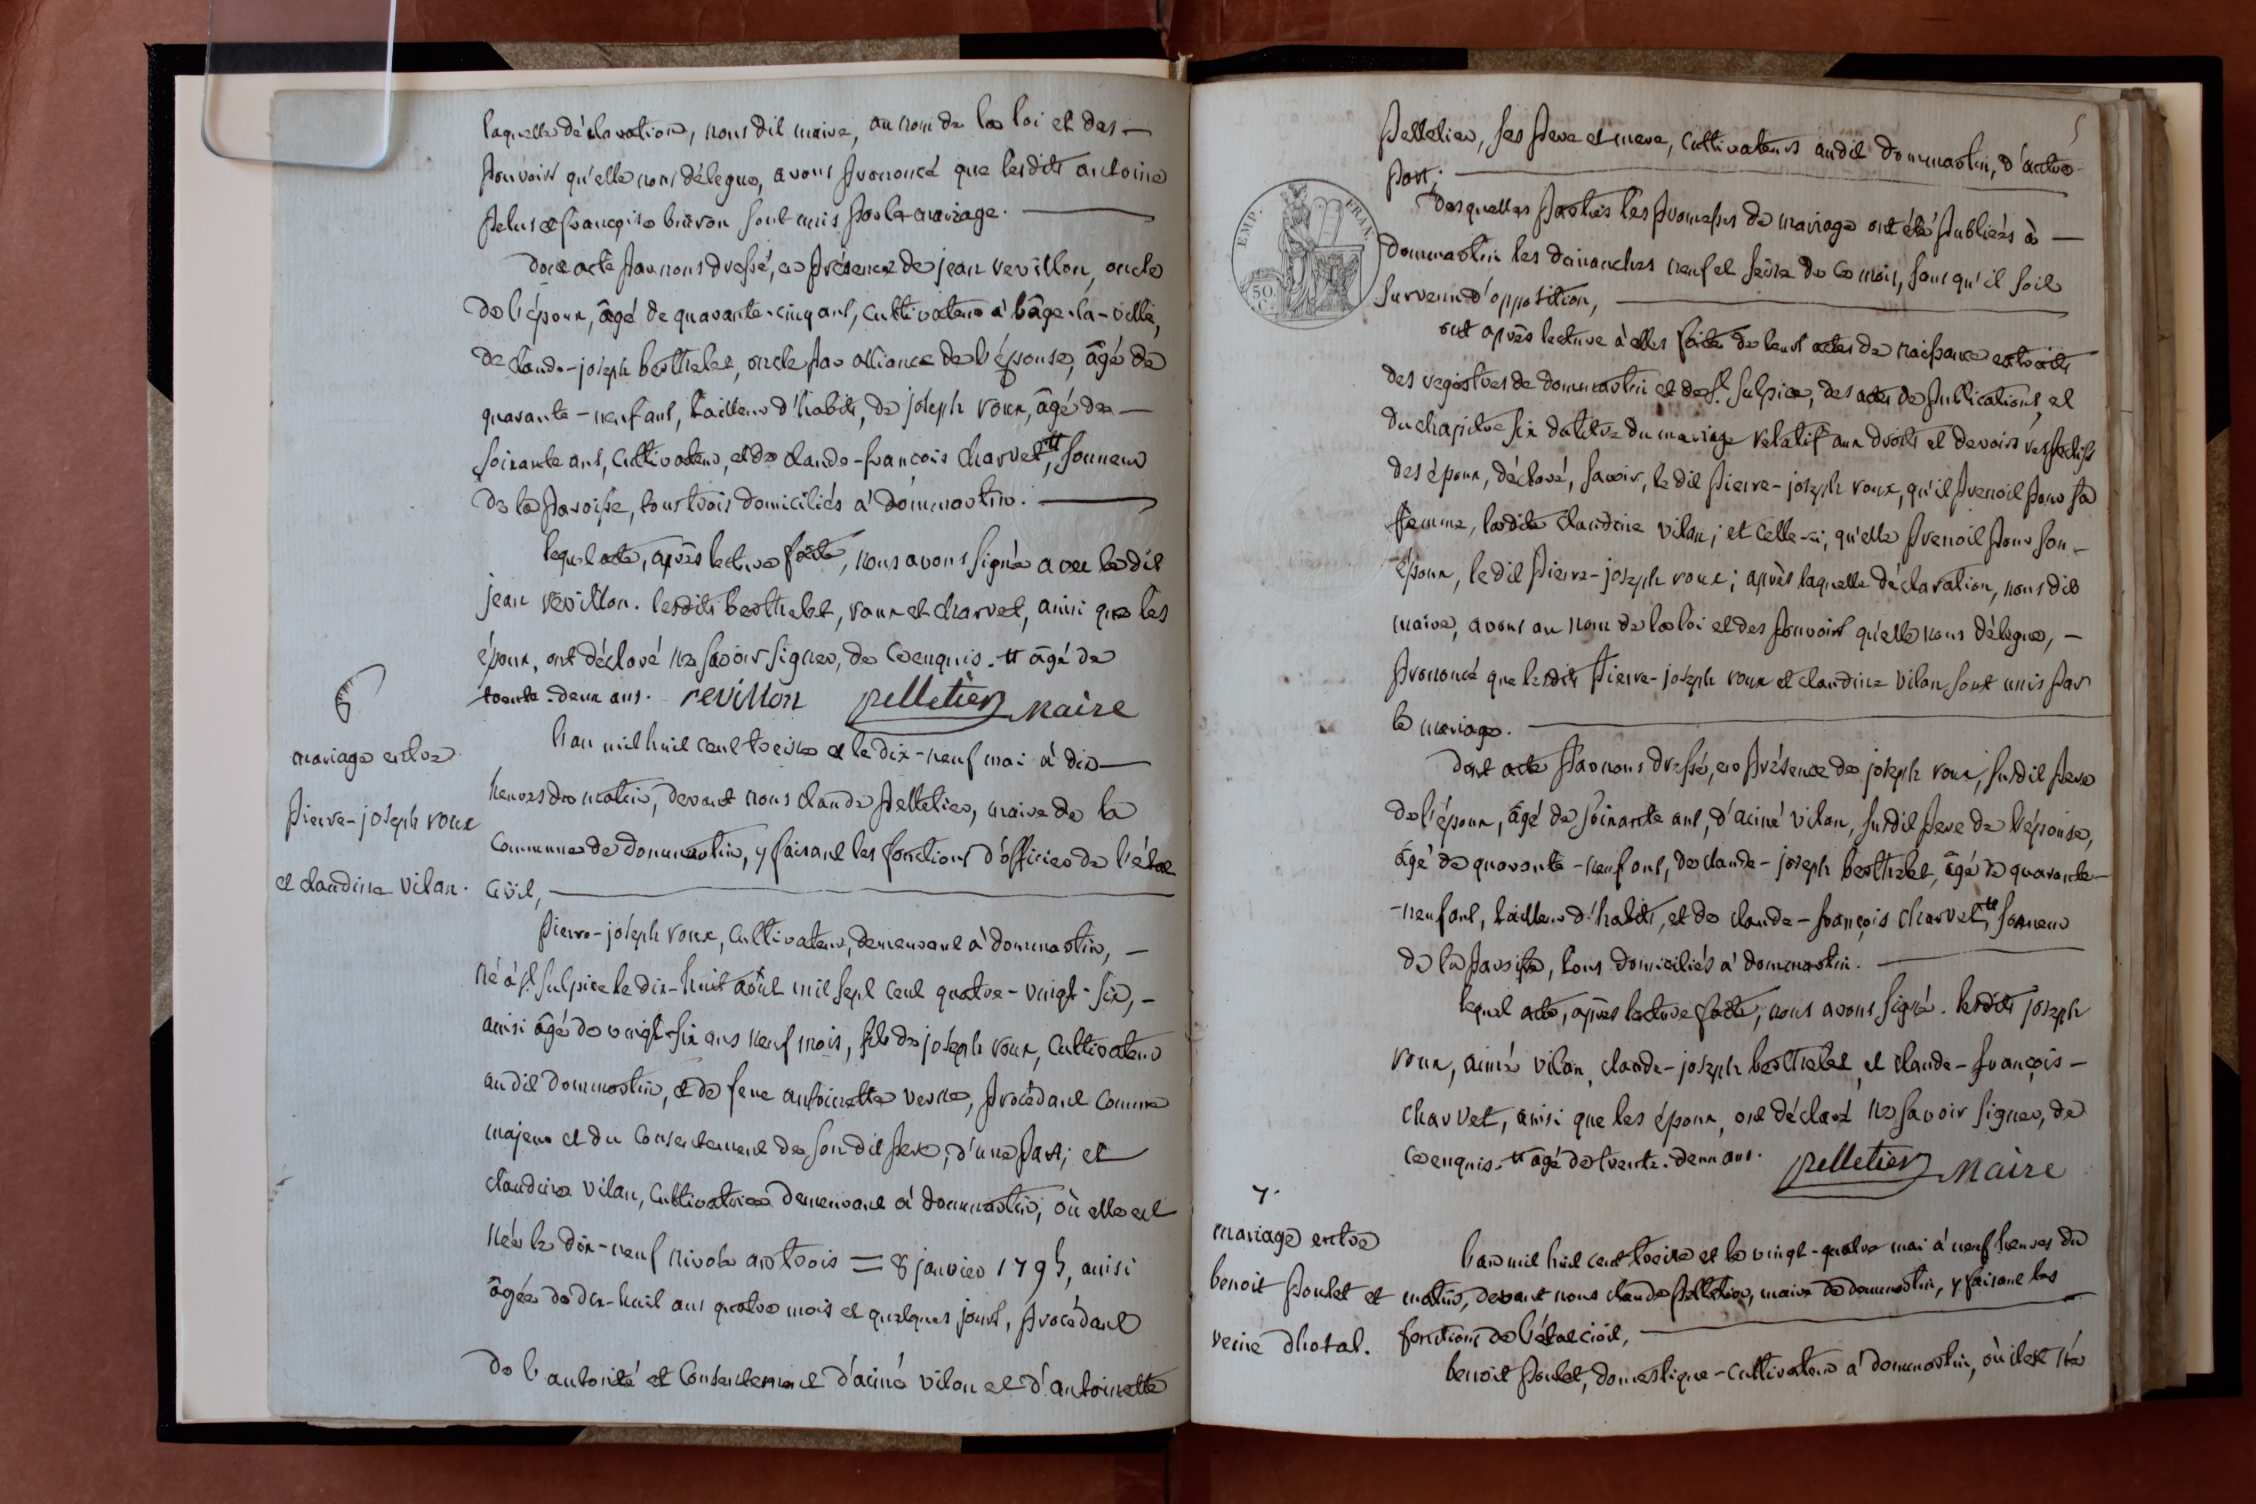 laquelle déclaration, nous dit maire, au nom de la loi et des
pouvoirs qu'elle nous délegue, avons prononcé que lesdits antoine
pelus et françoise buiron sont unis par le mariage.
dont acte par nous dressé, en présence de jean revillon, oncle
de l'époux, âgé de quarante-cinq ans, cultivateur à bâgé-la-ville,
de claude-joseph berthelet, oncle par alliance de l'épouse, âgé de
quarante-neuf ans, tailleur d'habits, de joseph roux, âgé de
soixante ans, cultivateur, et de claude-françois charvet, tt sonneur
de la paroisse, tous trois domiciliés à dommartin.
lequel acte, après lecture faite, nous avons signé avec le dit
jean revillon. lesdits berthelet, roux et charvet, ainsi que les
époux, ont déclaré ne savoir signer, de ce enquis. tt âgé de
trente-deux ans. revillon pelletier maire
6
mariage entre
pierre-joseph roux
et claudine vilan.
l'an mil huit cent treize et le dix-neuf mai à dix
heures du matin, devant nous claude pelletier, maire de la
commune de dommartin, y faisant les fonctions d'officier de l'état
civil,
pierre-joseph roux, cultivateur, demeurant à dommartin,
né à st. sulpice le dix-huit août mil sept cent quatre-vingt-six,
ainsi âgé de vingt-six ans neuf mois, fils de joseph roux, cultivateur
audit dommartin, et de feue antoinette verne, procédant comme
majeur et du consentement de son dit père, d'une part; et
claudine vilan, cultivatrice demeurant à dommartin, où elle est
née le dix-neuf nivose an trois = 8 janvier 1795, ainsi
âgée de dix-huit ans quatre mois et quelques jours, procédant
de l'autorité et consentement d'aimé vilan et d'antoinette
5
pelletier, ses père et mere, cultivateurs audit dommartin, d'autre
part;
EMP. FRAN.
50 C.
desquelles parties les promesses de mariage ont été publiées à
dommartin les dimanches neuf et seize de ce mois, sans qu'il soit
survenu d'opposition,
ont après lecture à elles faite de leurs actes de naissance extraits
des registres de dommartin et de st. sulpice, des actes de publications, et
du chapitre six du titre du mariage relatif aux droits et devoirs respectifs
des époux, déclaré, savoir, le dit pierre-joseph roux, qu'il prenoit pour sa
femme, ladite claudine vilan; et celle-ci, qu'elle prenoit pour son
époux, le dit pierre-joseph roux; après laquelle déclaration, nous dit
maire, avons au nom de la loi et des pouvoirs qu'elle nous délegue,
prononcé que lesdits pierre-joseph roux et claudine vilan sont unis par
le mariage.
dont acte par nous dressé, en présence de joseph roux, susdit pere
de l'époux, âgé de soixante ans, d'aimé vilan, susdit pere de l'épouse,
âgé de quarante-neuf ans, de claude-joseph berthelet, âgé de quarante-
-neuf ans, tailleur d'habits, et de claude-françois charvet, tt sonneur
de la paroisse, tous domiciliés à dommartin.
lequel acte, après lecture faite, nous avons signé. lesdits joseph
roux, aimé vilan, claude-joseph berthelet, et claude-françois-
charvet, ainsi que les époux, ont déclaré ne savoir signer, de
ce enquis. tt âgé de trente-deux ans. pelletier maire
7.
mariage entre
benoit poulet et
reine dhotal.
l'an mil huit cent treize et le vingt-quatre mai à neuf heures du
matin, devant nous claude pelletier, maire de dommartin, y faisant les
fonctions de l'état civil,
benoit poulet, domestique-cultivateur à dommartin, où il est né